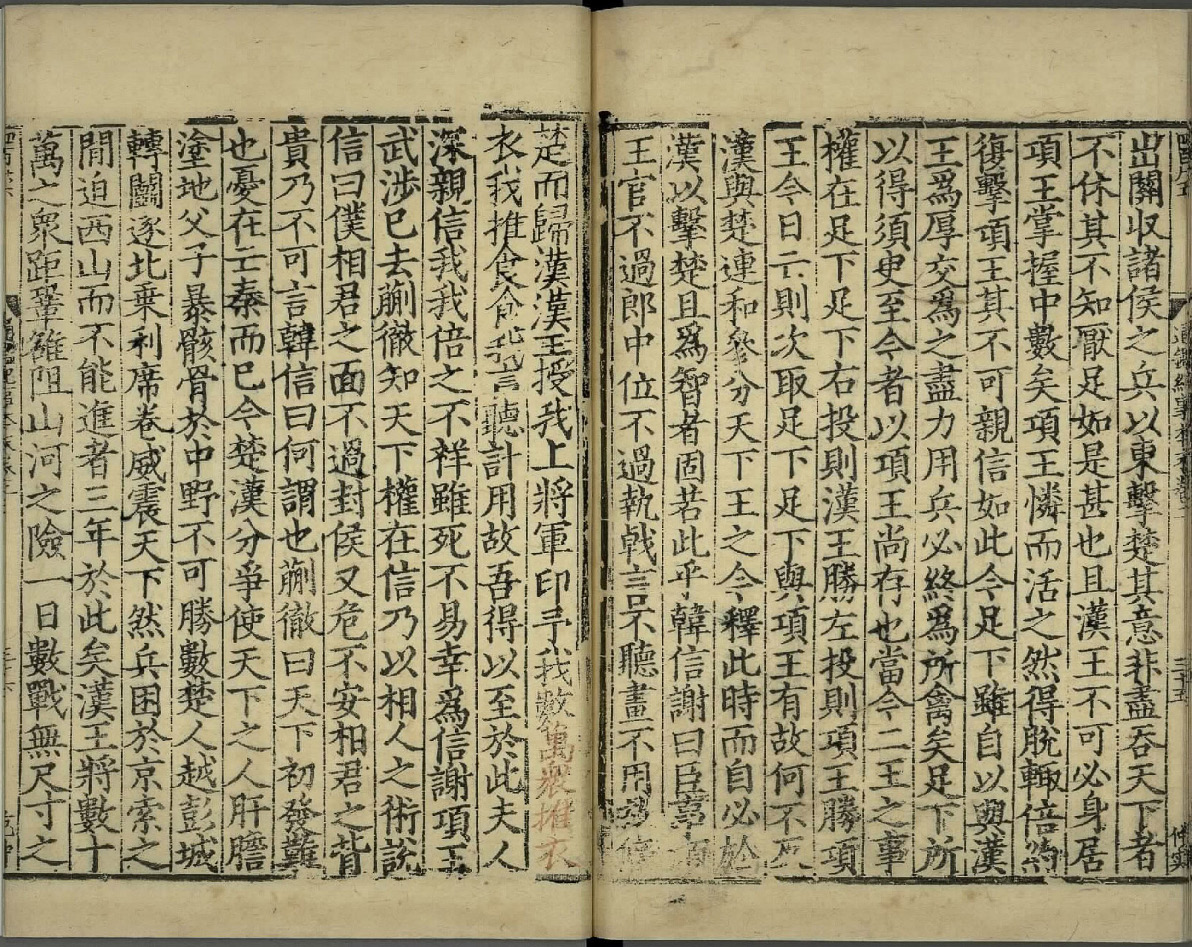 出關収諸侯之兵以東擊楚其意非盡吞天下者
不休其不知厭足如是甚也且漢王不可必身居
項王掌握中數矣項王憐而活之然得脫輙倍約
復擊項王其不可親信如此今足下雖自以與漢
王爲厚交爲之盡力用兵必終爲所禽矣足下所
以得須臾至今者以項王尚存也當今二王之事
權在足下足下右投則漢王勝左投則項王勝項
王今日亡則次取足下足下與項王有故何不反
漢與楚連和參分天下王之今釋此時而自必於
漢以擊楚且爲智者固若此乎韓信謝曰臣事項
王官不過郎中位不過執戟言不聽畫不用故倍
楚而歸漢漢王授我上將軍印予我數萬衆推衣
衣我推食食我言聽計用故吾得以至於此夫人
深親信我我倍之不祥雖死不易幸爲信謝項王
武涉已去蒯徹知天下權在信乃以相人之術說
信曰僕相君之面不過封侯又危不安相君之背
貴乃不可言韓信曰何謂也蒯徹曰天下初發難
也憂在亡秦而已今楚漢分爭使天下之人肝膽
塗地父子暴骸骨於中野不可勝數楚人越彭城
轉鬭逐北乗利席卷威震天下然兵困於京索之
間迫西山而不能進者三年於此矣漢王將數十
萬之衆距鞏雒阻山河之險一日數戰無尺寸之